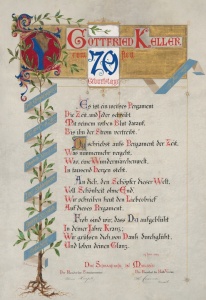 GOTTFRIED KELLER
zum
70
Geburtstage
Es ist ein weites Pergament
Die Zeit und Jeder schreibt
Mit seinem rothen Blut darauf,
Bis ihn der Strom vertreibt.
Du schriebst aufs Pergament der Zeit
Was nimmermehr vergeht,
Was, eine Wundermärchenwelt,
In tausend Herzen steht.
An dich, den Schöpfer dieser Welt,
Voll Schönheit ohne End,
Wir schreiben heut den Liebesbrief
Auf dieses Pergament.
Froh sind wir, dass Dir aufgeblüht
In deiner Jahre Kranz;
Wir grüssen dich von Dank durchglüht
Und loben deinen Glanz.